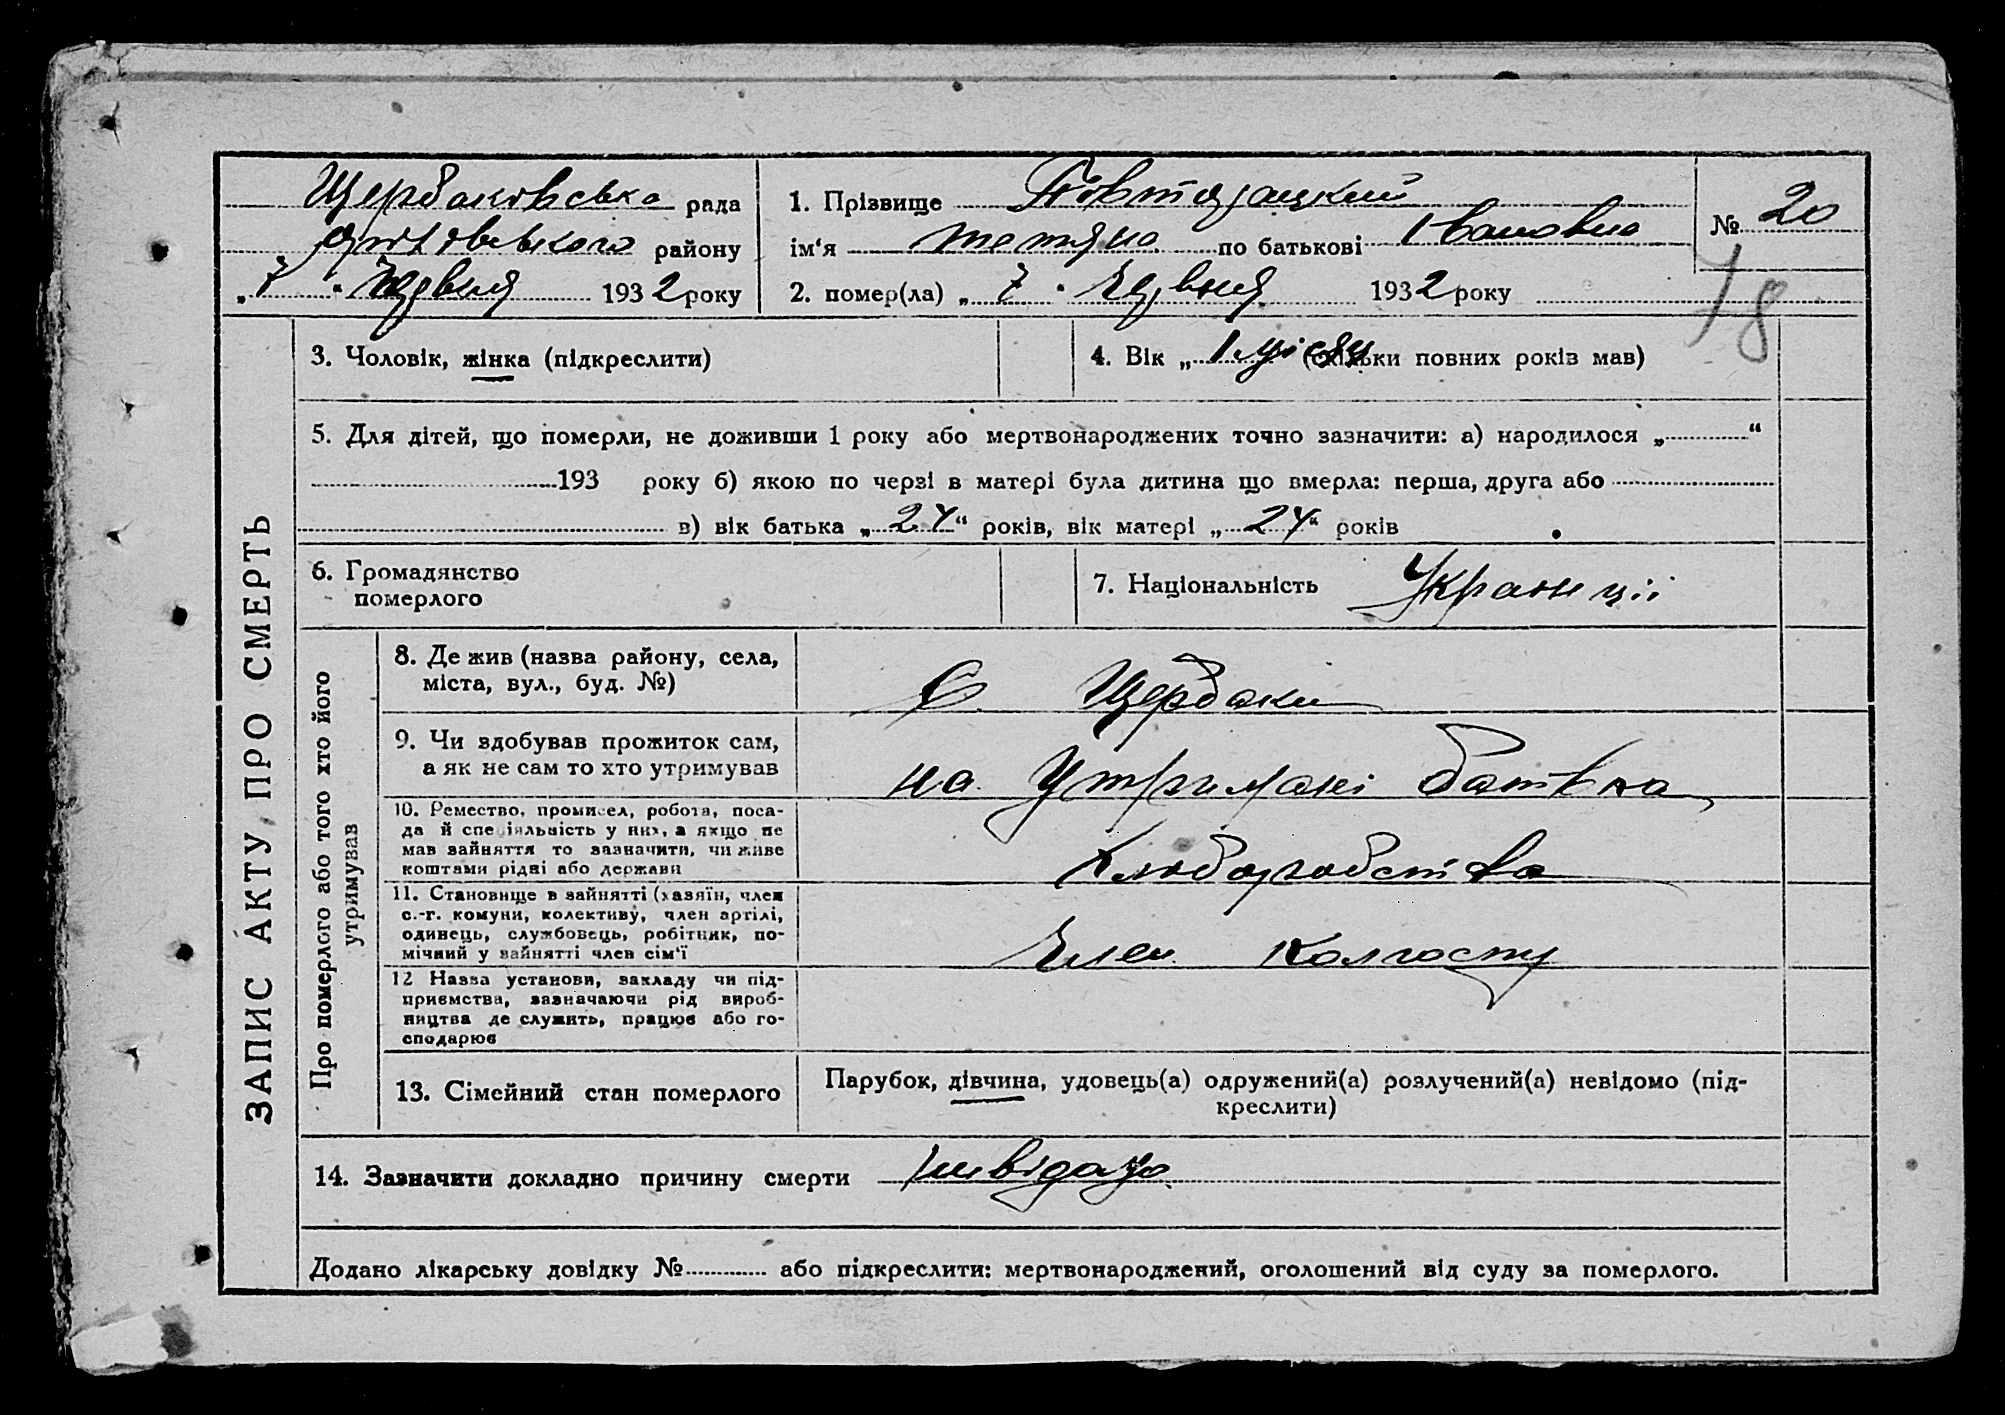 Щербаківська рада
району
„ 7 “ Червня 1932 року
1. Прізвище
ім‘я Тетяна по батькові Івановна
2. помер(ла) „ 7 “ Червня 1932 року
№ 20
78
ЗАПИС АКТУ ПРО СМЕРТЬ
3. Чоловік, жінка (підкреслити)
4. Вік „ 1 місяц (скільки повних років мав)
5. Для дітей, що померли, не доживши 1 року або мертвонароджених точно зазначити: а) народилося „ “
193 року б) якою по черзі в матері була дитина що вмерла: перша, друга або
в) вік батька „ 24 “ років, вік матері „ 24 “ років
6. Громадянство
померлого
7. Національність
Про померлого або того хто його
утримував
8. Де жив (назва району, села,
міста, вул., буд. №)
С. Щербаки
9. Чи здобував прожиток сам,
а як не сам то хто утримував
на утримані батька
10. Ремество, промисел, робота, поса-
да й спеціяльність у них, а якщо не
мав зайняття то зазначити, чи живе
коштами рідні або держави
11. Становище в зайнятті (хазяїн, член
с.-г. комуни, колективу, член артілі,
одинець, службовець, робітник, по-
мічний у зайнятті член сім‘ї
Член колгоспу
12 Назва установи, закладу чи під-
приємства, зазначаючи рід вироб-
ництва де служить, працює або го-
сподарює
13. Сімейний стан померлого
Парубок, дівчина, удовець(а) одружений(а) розлучений(а) невідомо (під-
креслити)
14. Зазначити докладно причину смерти
Додано лікарську довідку № або підкреслити: мертвонароджений, оголошений від суду за померлого.